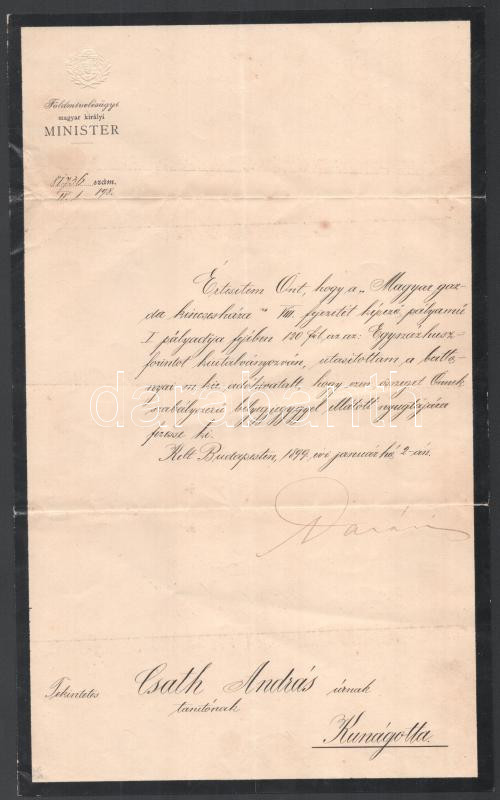 Földmivelésügyi
magyar királyi
MINISTER
szám.
Értesitem Önt, hogy a „Magyar gaz-
da kincsesháza" VIII. fejezetét képező pályamű
I pályadíja fejében 120 frt, az az: Egyszázhusz
forintot kiutalványozván, utasitottam a batto-
nyai m. kir. adóhivatalt, hogy ezen összeget Önnek
szabályszerű bélyegjeggyel ellátott nyugtájára
fizesse ki.
Kelt Budapesten, 1899. évi január hó 2-án.
Darányi
darabanth
Tekintetes Csath András úrnak
tanítónak
Kunágota.